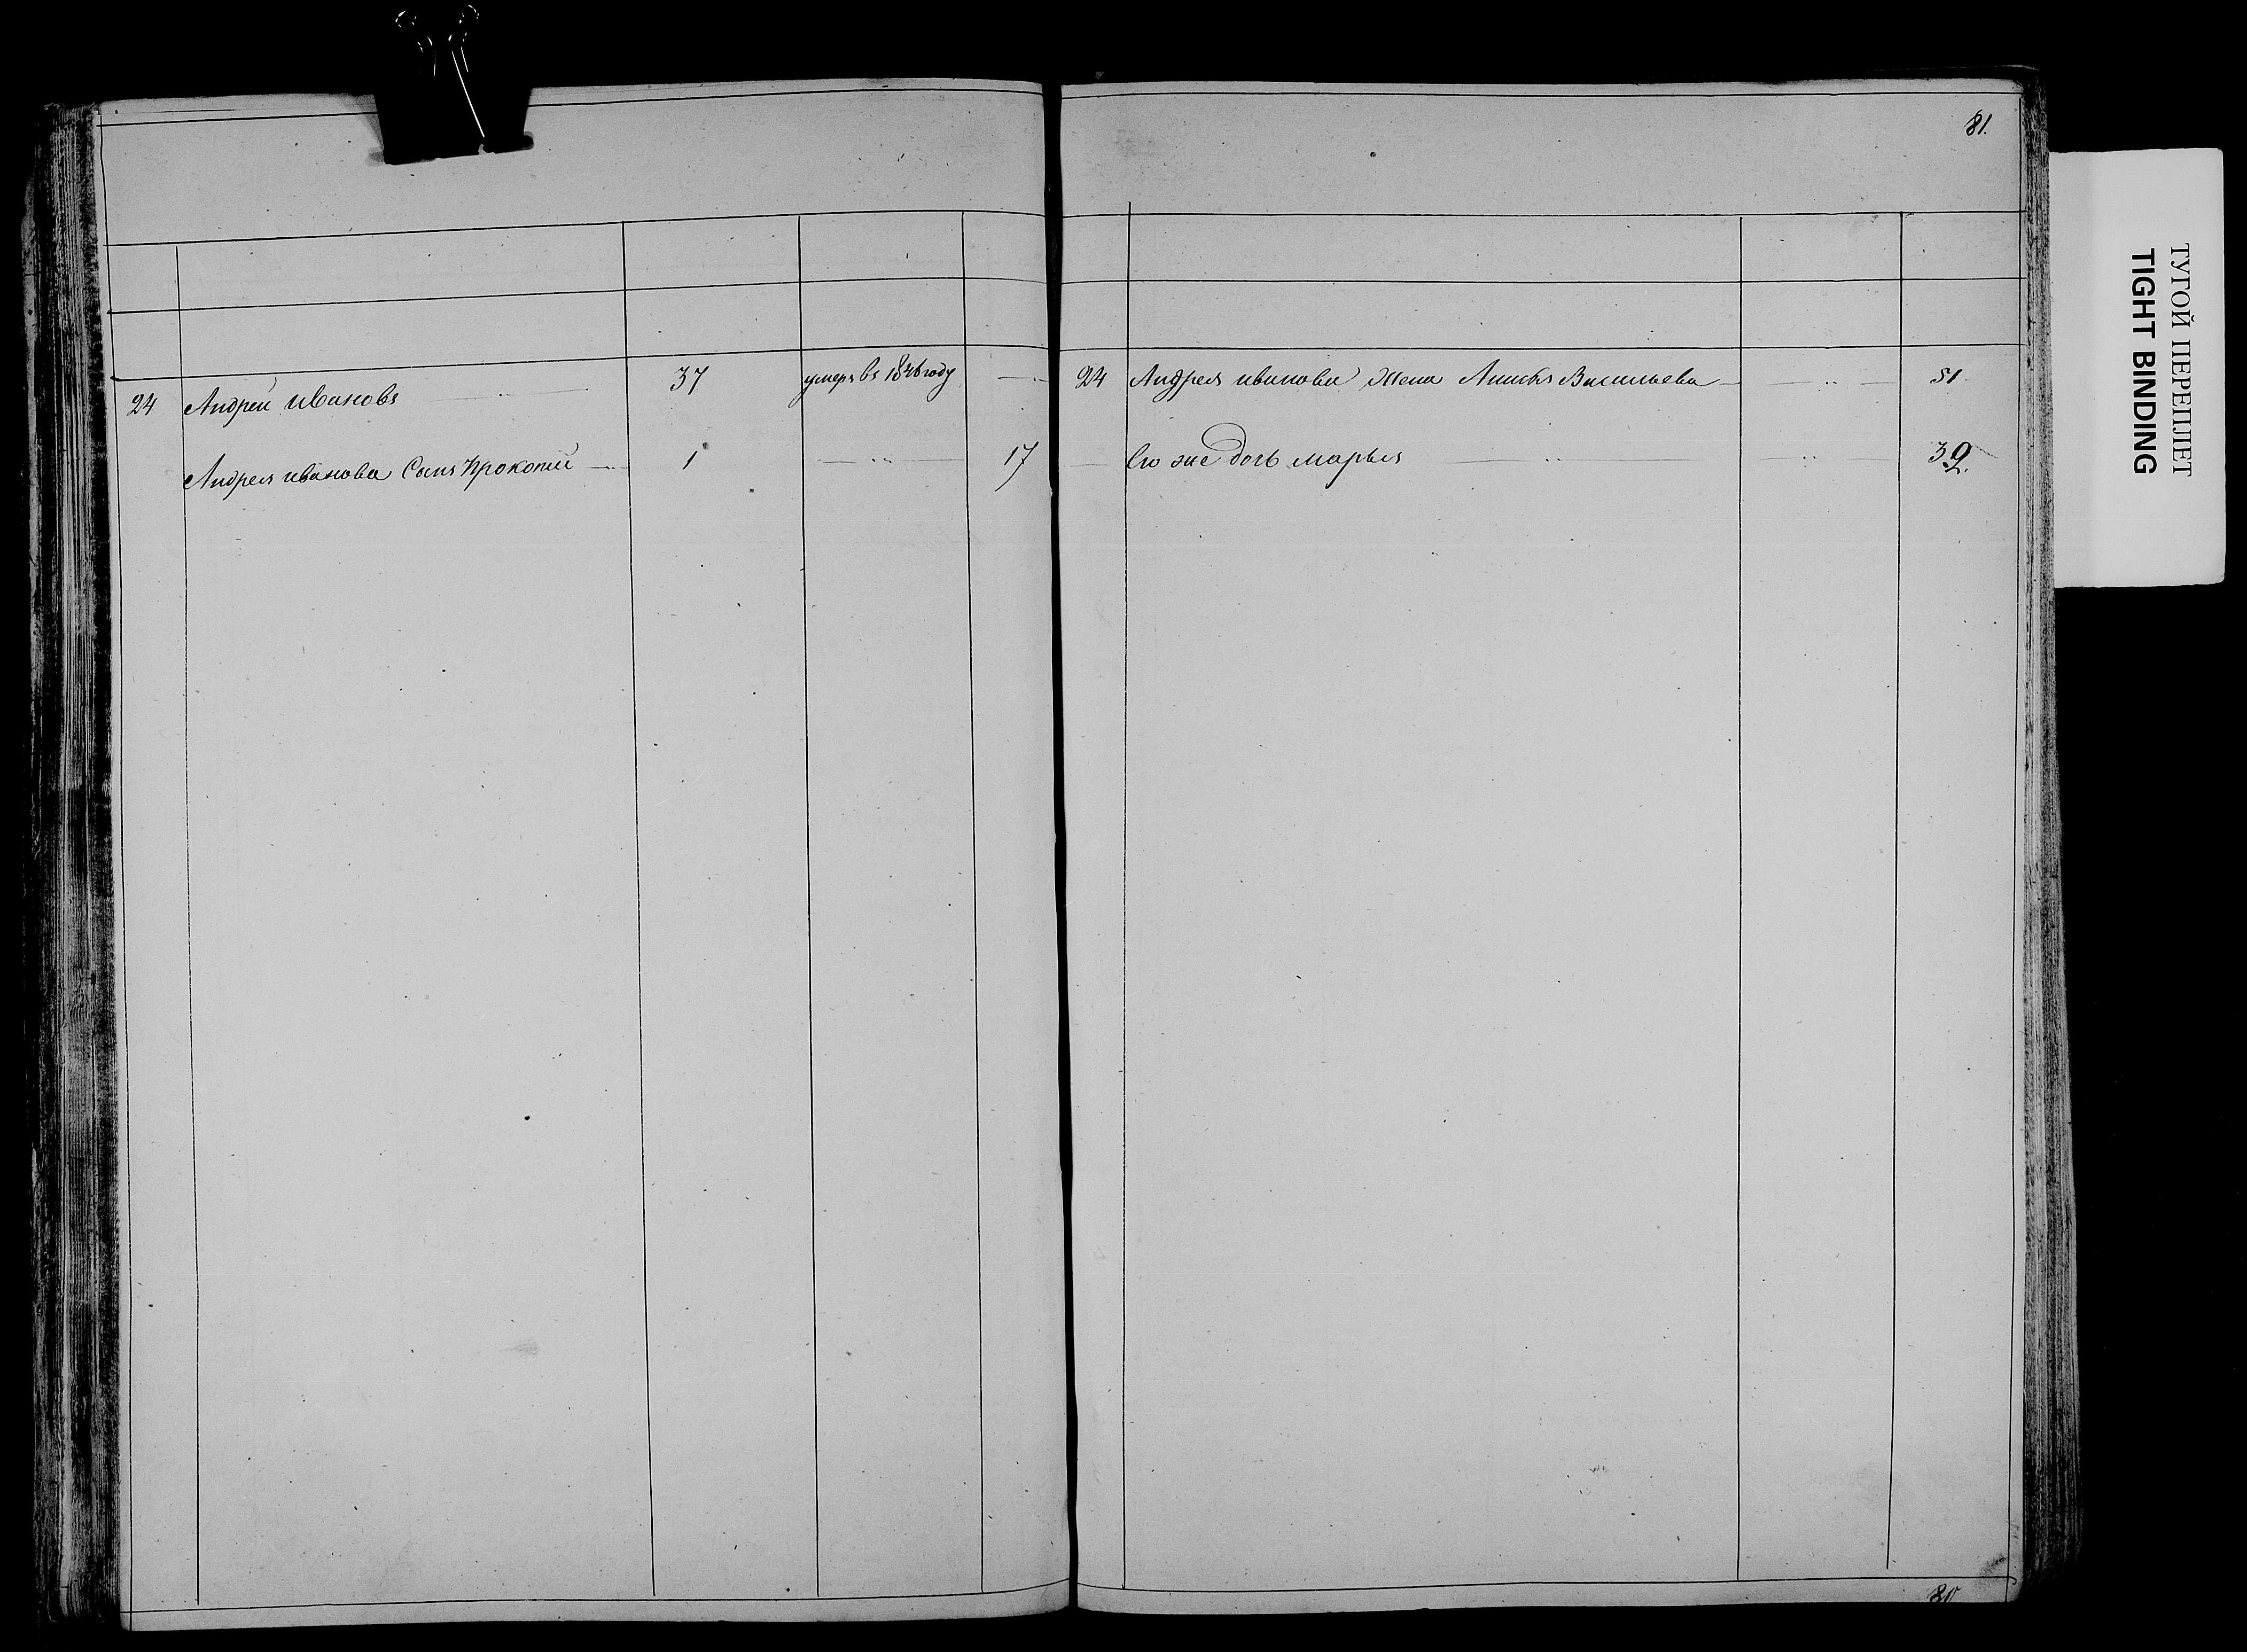 81.
24 Андрей Ивановъ 37 умеръ въ 1846 году
Андрея Иванова Сынъ Прокопий 1 17
24 Андрея Иванова Жена Васильева 51
Его же дочь Марья 32.
80
ТУГОЙ ПЕРЕПЛЕТ
TIGHT BINDING